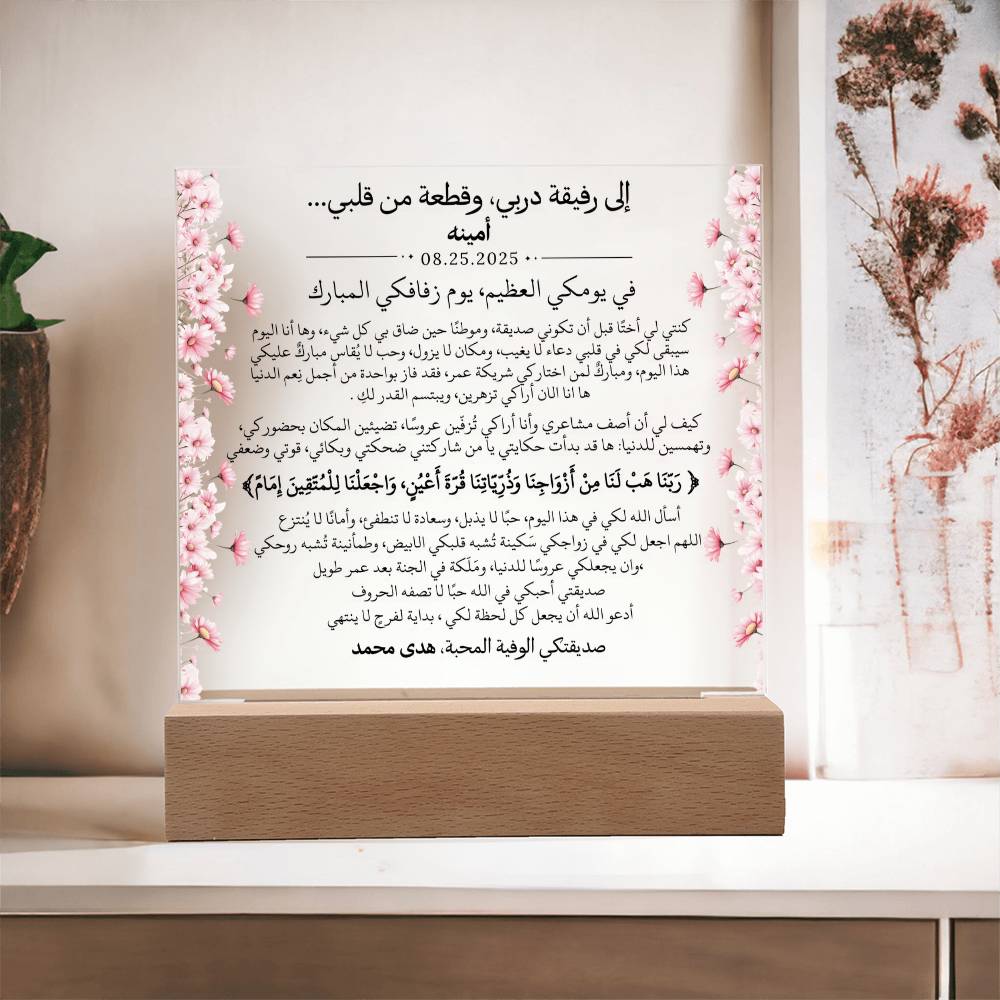 إلى رفيقة دربي، وقطعة من قلبي...
أمينه
08.25.2025
في يومكي العظيم، يوم زفافكي المبارك
كنتي لي أختًا قبل أن تكوني صديقة، وموطنًا حين ضاق بي كل شيء، وها أنا اليوم
سيبقى لكي في قلبي دعاء لا يغيب، ومكان لا يزول، وحب لا يُقاس مباركٌ عليكي
هذا اليوم، ومباركٌ لمن اختاركي شريكة عمر، فقد فاز بواحدة من أجمل نِعم الدنيا
ها انا الان أراكي تزهرين، ويبتسم القدر لكِ .
كيف لي أن أصف مشاعري وأنا أراكي تُزفّين عروسًا، تضيئين المكان بحضوركي،
وتهمسين للدنيا: ها قد بدأت حكايتي يا من شاركتني ضحكتي وبكائي، قوتي وضعفي
﴿ رَبّنَا هَبْ لَنَا مِنْ أَزْوَاجِنَا وَذُرِيّاتِنَا قُرّةَ أَعْيُنٍ، وَاجْعَلْنَا لِلْمُتّقِينَ إِمَامً﴾
أسأل الله لكي في هذا اليوم، حبًا لا يذبل، وسعادة لا تنطفئ، وأمانًا لا يُنتزع
اللهم اجعل لكي في زواجكي سَكينة تُشبه قلبكي الابيض، وطمأنينة تُشبه روحكي
،وان يجعلكي عروسًا للدنيا، ومَلَكة في الجنة بعد عمر طويل
صديقتي أحبكي في الله حبًا لا تصفه الحروف
أدعو الله أن يجعل كل لحظة لكي ، بداية لفرحٍ لا ينتهي
صديقتكي الوفية المحبة، هدى محمد